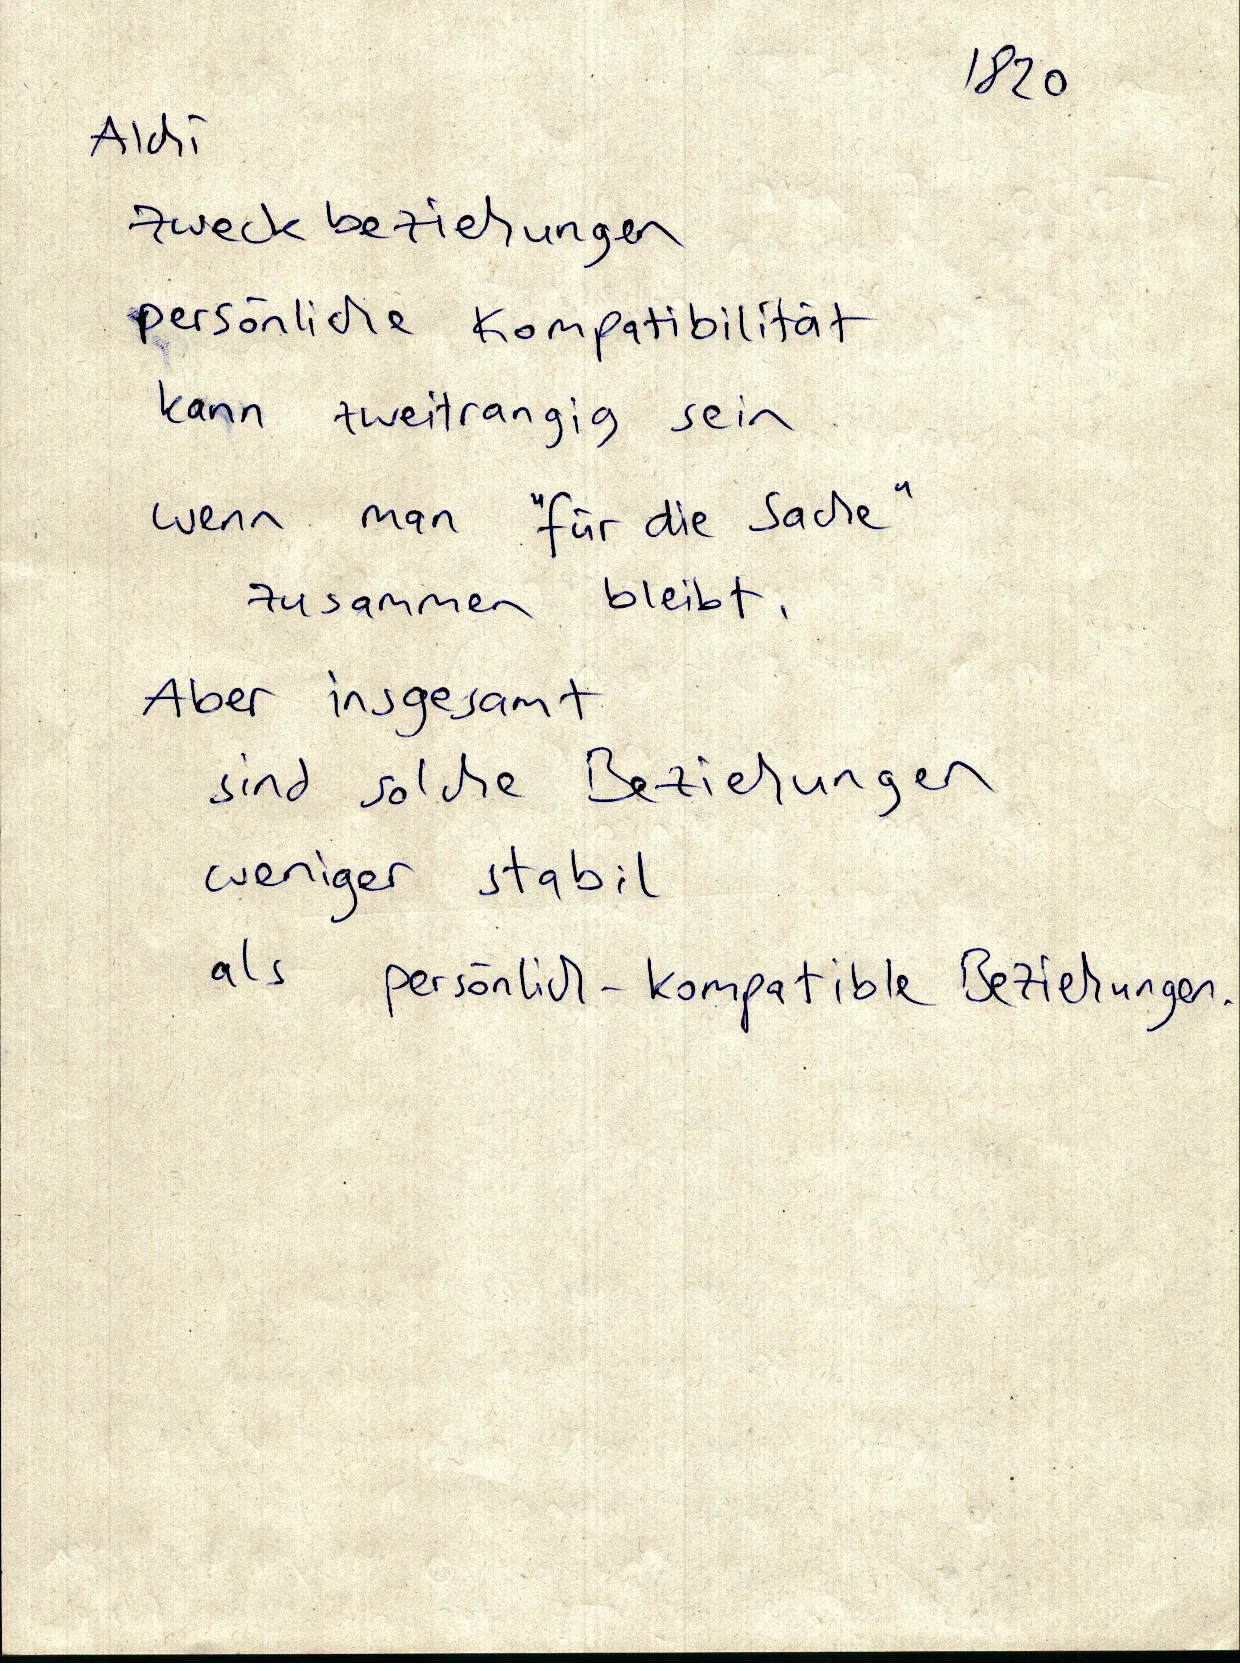 1820
Alchi
zweckbeziehungen
persönliche Kompatibilität
kann zweitrangig sein
wenn man "für die Sache"
zusammen bleibt.
Aber insgesamt
sind solche Beziehungen
weniger stabil
als persönlich-kompatible Beziehungen.